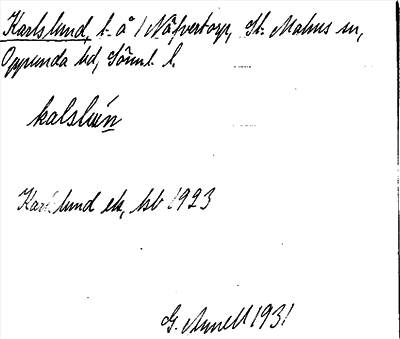 Karlslund, t. å 1 Näfvertorp, St. Malms sn,
Oppunda hd, Sörml. l.
kalslun
Karlslund ek, hsb 1923
G. Annell 1931